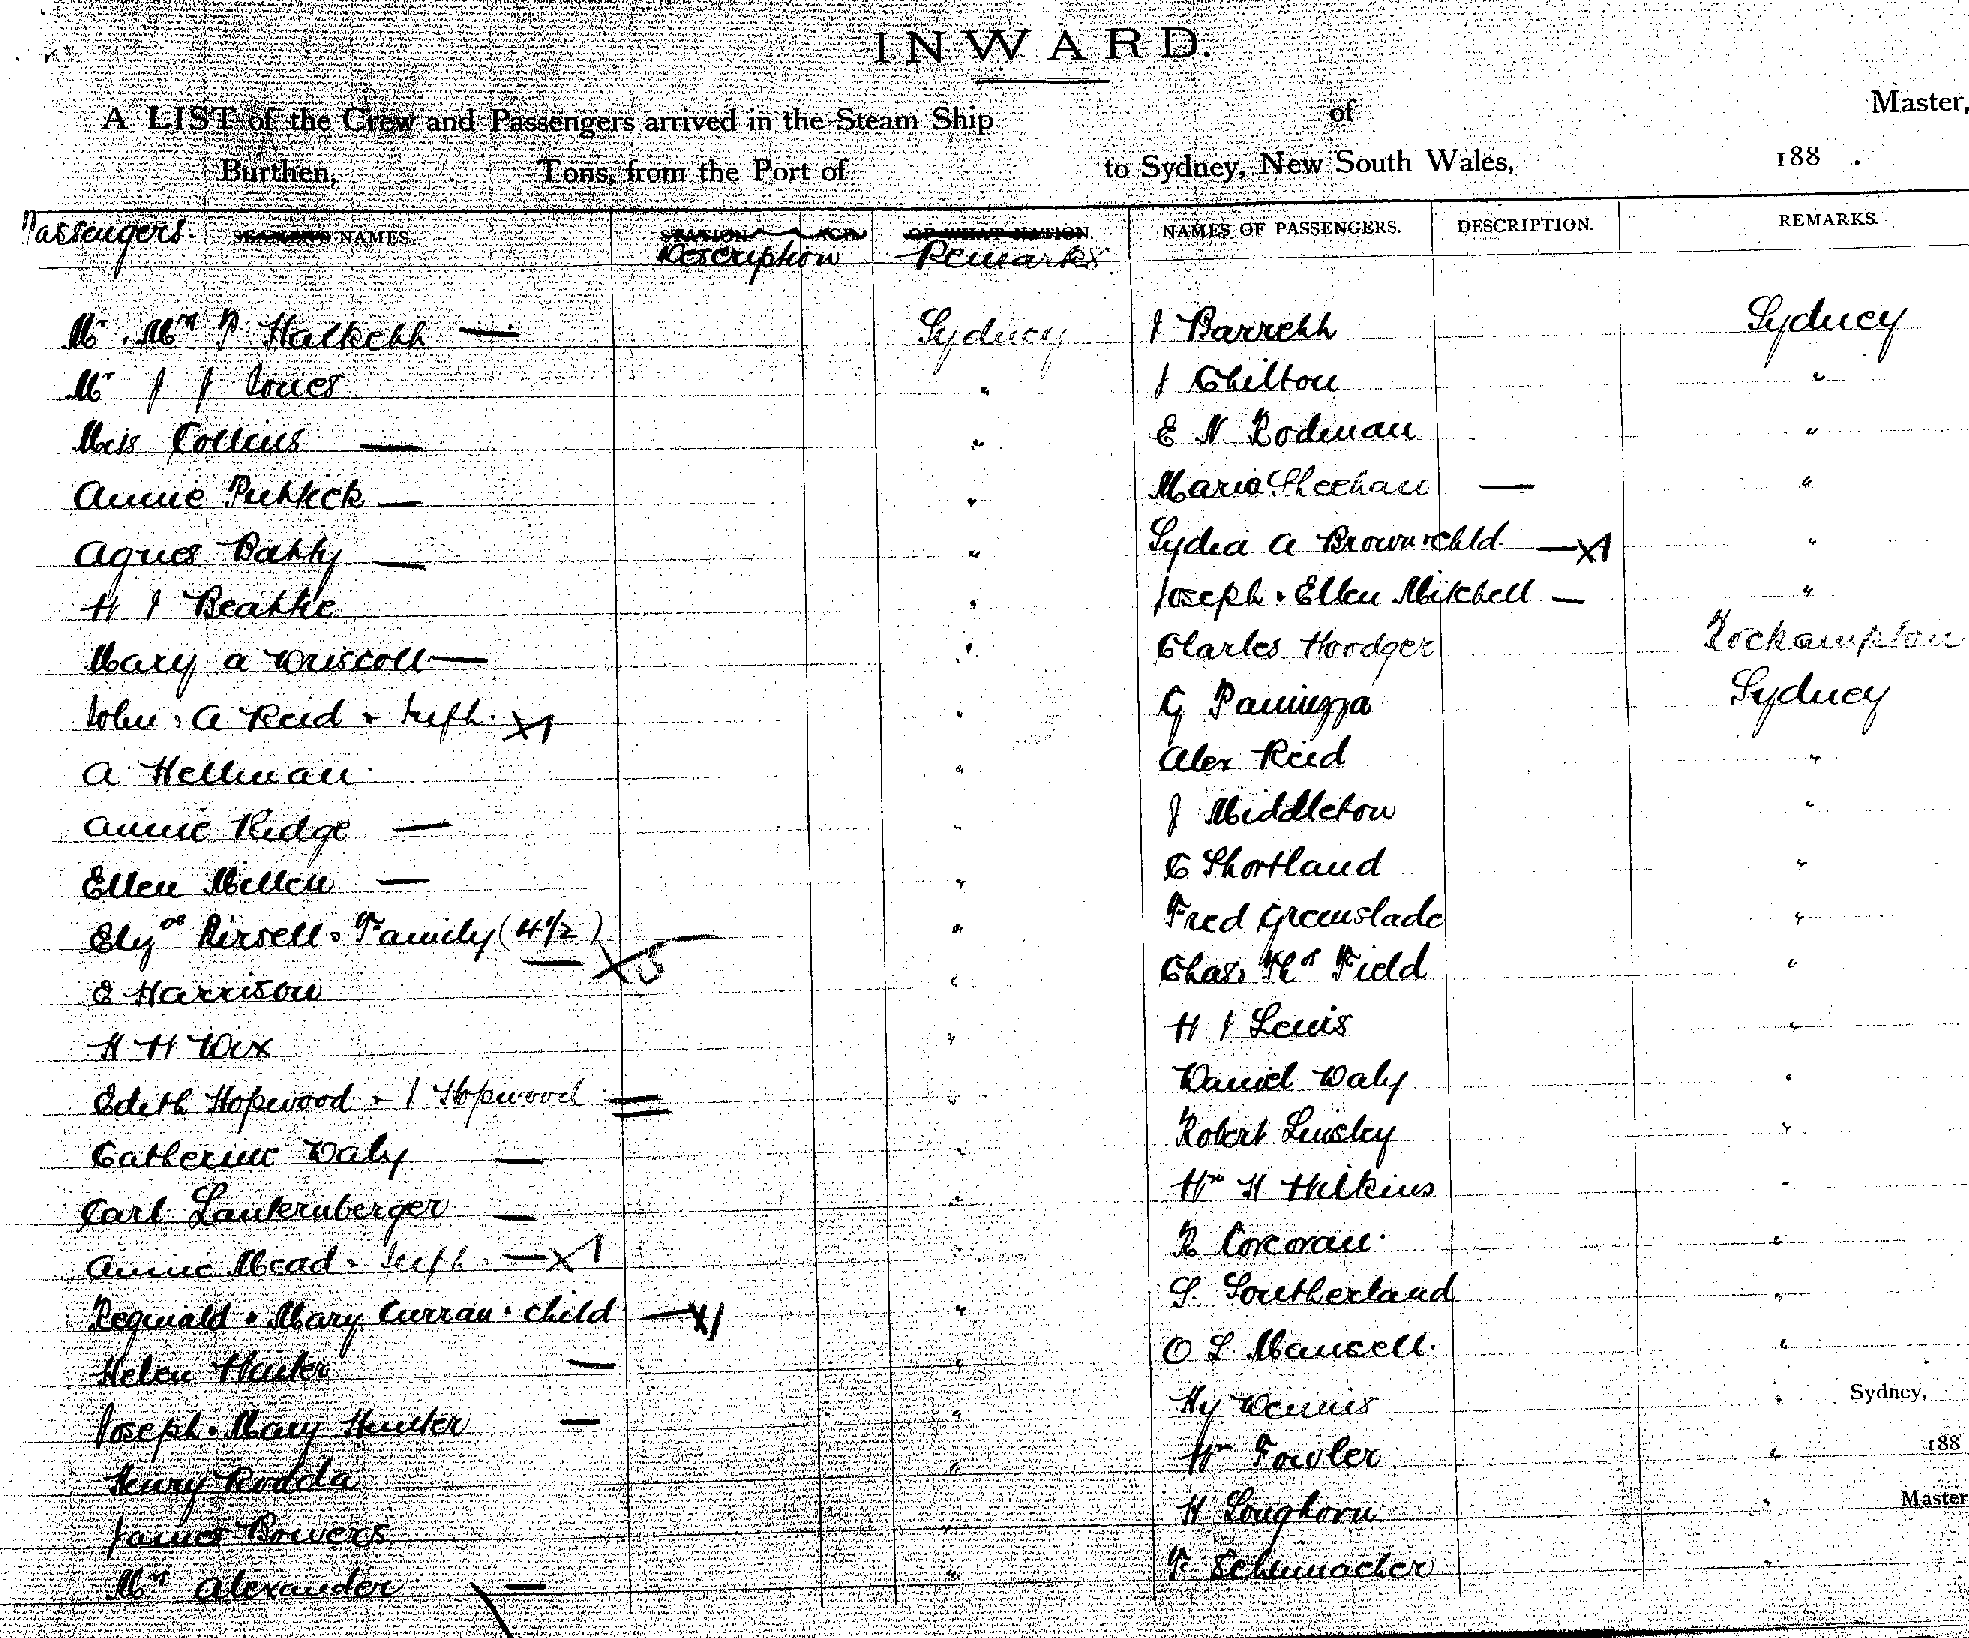 INWARD.
A LIST of the Crew and Passengers arrived in the Steam Ship of Master,
Burthen, Tons, from the Port of to Sydney, New South Wales, 188 .
Passengers. NAMES. STATION AGE OF WHAT NATION. NAMES OF PASSENGERS. DESCRIPTION. REMARKS.
Description Remarks
Mr. Mrs P Halkett — Sydney
Mr J J Jones "
Miss Collins — "
Annie Puttick — "
Agnes Batty — "
H J Beattie "
Mary A Driscoll — "
John & A Reid & Inft. X1 "
A Hellman "
Annie Ridge — "
Ellen Mellen — "
Family (4½) — X5 "
E Harrison "
H H Wix "
Edith Hopwood & J Hopwood = "
Catherine Daly — "
Carl Lankernberger — "
Annie Mead & Inft. — X1 "
Reginald & Mary Curran & child — X1 "
Helen Hunter — "
Joseph & Mary Hunter — "
Henry Rodda "
James Bowers "
Mrs Alexander — "
J Barrett Sydney
J Chilton "
E N Rodman "
Maria Sheehan — "
Lydia A Brown & chld — X1 "
Joseph & Ellen Mitchell — "
Charles Hoodger Rockampton
G Panizza Sydney
Alex Reid "
J Middleton "
C Shortland "
Fred Grenslade "
Chas. Ths Field "
H J Lewis "
Daniel Daly "
Robert Linsley "
Wm H Wilkins "
R Corcoran "
S. Southerland "
O L Mansell. "
Hy Dennis " Sydney,
Wm Fowler " 188
H Longhorn " Master
F Schumacher "